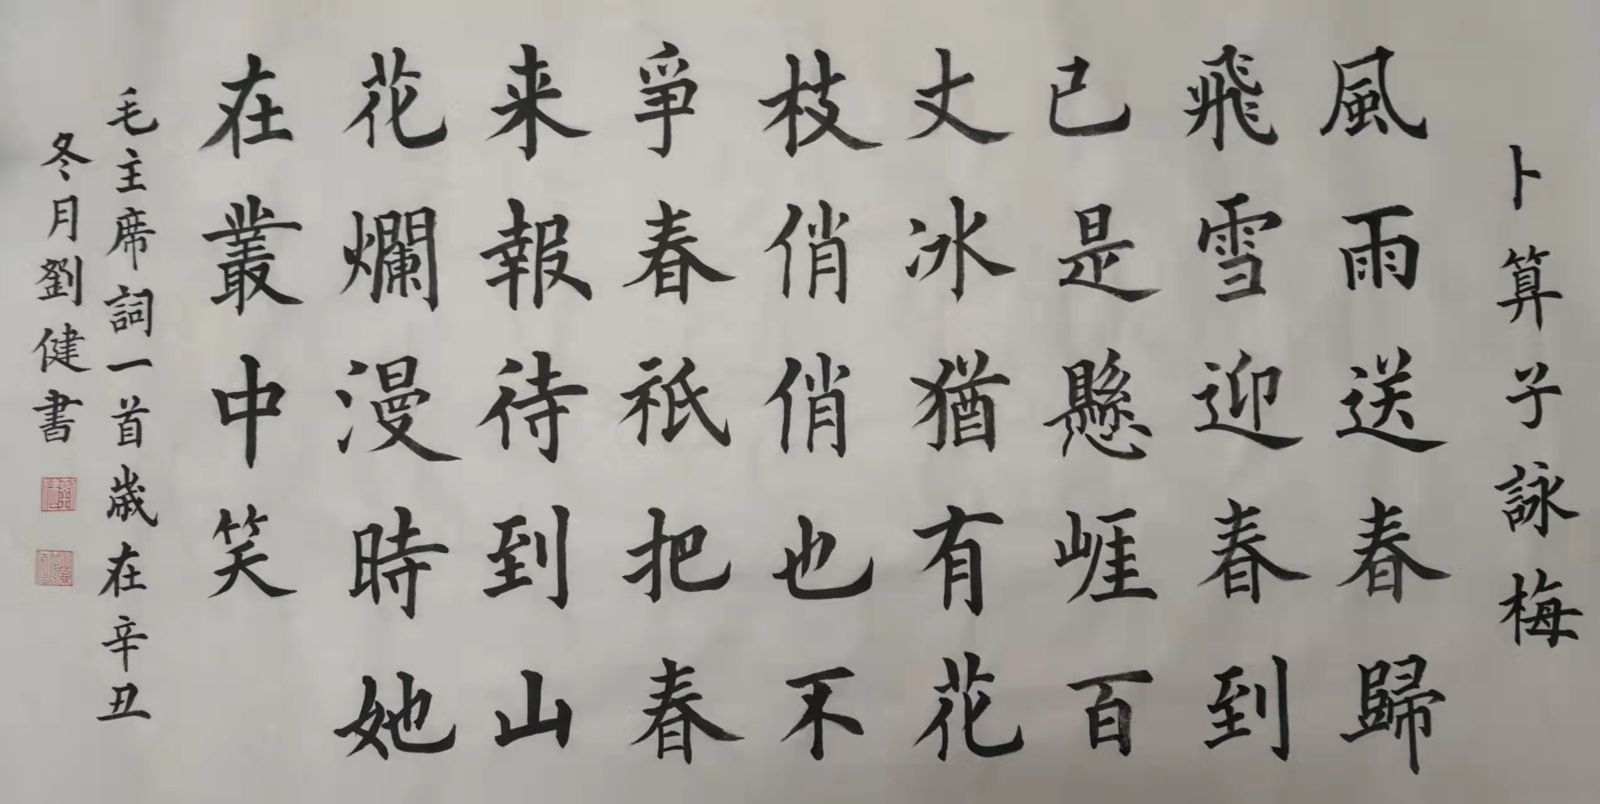 卜算子詠梅
風雨送春歸
飛雪迎春到
已是懸崕百
丈冰猶有花
枝俏俏也不
爭春祇把春
来報待到山
花爛漫時她
在叢中笑
毛主席詞一首歲在辛丑
冬月劉健書